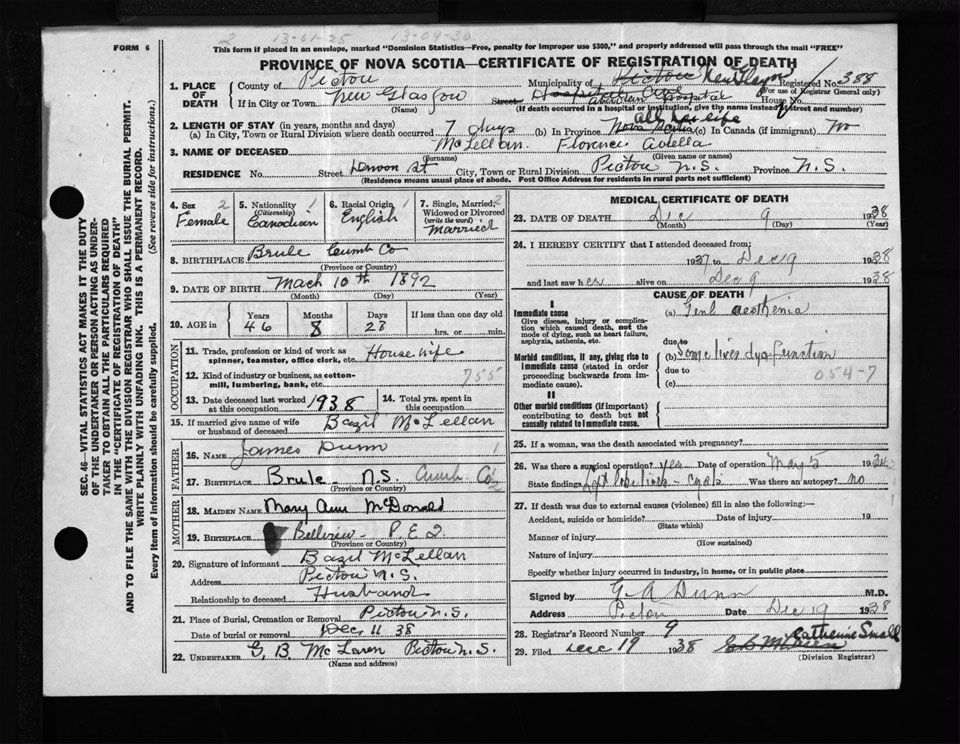 2 13-01-25 13-09-30
FORM 6
This form if placed in an envelope, marked "Dominion Statistics—Free, penalty for improper use $300," and properly addressed will pass through the mail "FREE"
PROVINCE OF NOVA SCOTIA—CERTIFICATE OF REGISTRATION OF DEATH
SEC. 46—VITAL STATISTICS ACT MAKES IT THE DUTY
OF THE UNDERTAKER OR PERSON ACTING AS UNDER-
TAKER TO OBTAIN ALL THE PARTICULARS REQUIRED
IN THE "CERTIFICATE OF REGISTRATION OF DEATH"
AND TO FILE THE SAME WITH THE DIVISION REGISTRAR WHO SHALL ISSUE THE BURIAL PERMIT.
WRITE PLAINLY WITH UNFADING INK. THIS IS A PERMANENT RECORD.
Every item of information should be carefully supplied. (See reverse side for instructions.)
1. PLACE OF DEATH
County of Pictou Municipality of Pictou New Glasgow Registered No. 388
(For use of Registrar General only)
If in City or Town New Glasgow Street Aberdeen Hospital House No.
(Name) (If death occurred in a hospital or institution, give the name instead of street and number)
2. LENGTH OF STAY (in years, months and days) all her life
(a) In City, Town or Rural Division where death occurred 7 days (b) In Province Nova Scotia (c) In Canada (if immigrant) no
3. NAME OF DECEASED McLellan Florence Adella
(Surname) (Given name or names)
RESIDENCE No. Street Denoon St City, Town or Rural Division Pictou N.S. Province N.S.
(Residence means usual place of abode. Post Office Address for residents in rural parts not sufficient)
4. Sex 2 Female
5. Nationality (Citizenship) 1 Canadian
6. Racial Origin 1 English
7. Single, Married, Widowed or Divorced (write the word) 2 Married
8. BIRTHPLACE Brule Cumb Co
(Province or Country)
9. DATE OF BIRTH Mach 10th 1892
(Month) (Day) (Year)
10. AGE in Years 46 Months 8 Days 28 If less than one day old hrs. or min.
OCCUPATION
11. Trade, profession or kind of work as spinner, teamster, office clerk, etc. House wife
12. Kind of industry or business, as cotton-mill, lumbering, bank, etc. 755
13. Date deceased last worked at this occupation 1938 14. Total yrs. spent in this occupation
15. If married give name of wife or husband of deceased Bazil McLellan
FATHER
16. NAME James Dunn 1
17. BIRTHPLACE Brule N.S. Cumb. Co 2
(Province or Country)
MOTHER
18. MAIDEN NAME Mary Ann McDonald
19. BIRTHPLACE Bellview - P.E.I.
(Province or Country)
20. Signature of informant Bazil McLellan
Address Pictou N.S.
Relationship to deceased Husband
21. Place of Burial, Cremation or Removal Pictou N.S.
Date of burial or removal Dec 11 38
22. UNDERTAKER G. B. McLaren Pictou N.S.
(Name and address)
MEDICAL CERTIFICATE OF DEATH
23. DATE OF DEATH Dec 9 1938
(Month) (Day) (Year)
24. I HEREBY CERTIFY that I attended deceased from:
1937 to Dec 19 1938
and last saw her alive on Dec 9 1938
CAUSE OF DEATH
I
Immediate cause (a) Genl aesthenia
Give disease, injury or complication which caused death, not the mode of dying, such as heart failure, asphyxia, asthenia, etc.
due to
Morbid conditions, if any, giving rise to immediate cause (stated in order proceeding backwards from immediate cause). (b) Some liver dysfunction
due to 054-7
(c)
II
Other morbid conditions (if important) contributing to death but not causally related to immediate cause.
25. If a woman, was the death associated with pregnancy?
26. Was there a surgical operation? yes Date of operation May 5 193
State findings Left lobe liver - cysts Was there an autopsy? no
27. If death was due to external causes (violence) fill in also the following:
Accident, suicide or homicide? Date of injury 19
(State which)
Manner of injury
(How sustained)
Nature of injury
Specify whether injury occurred in industry, in home, or in public place
Signed by G A Dunn M.D.
Address Pictou Date Dec 19 1938
28. Registrar's Record Number 9
29. Filed Dec 19 1938 Catherine Small
(Division Registrar)